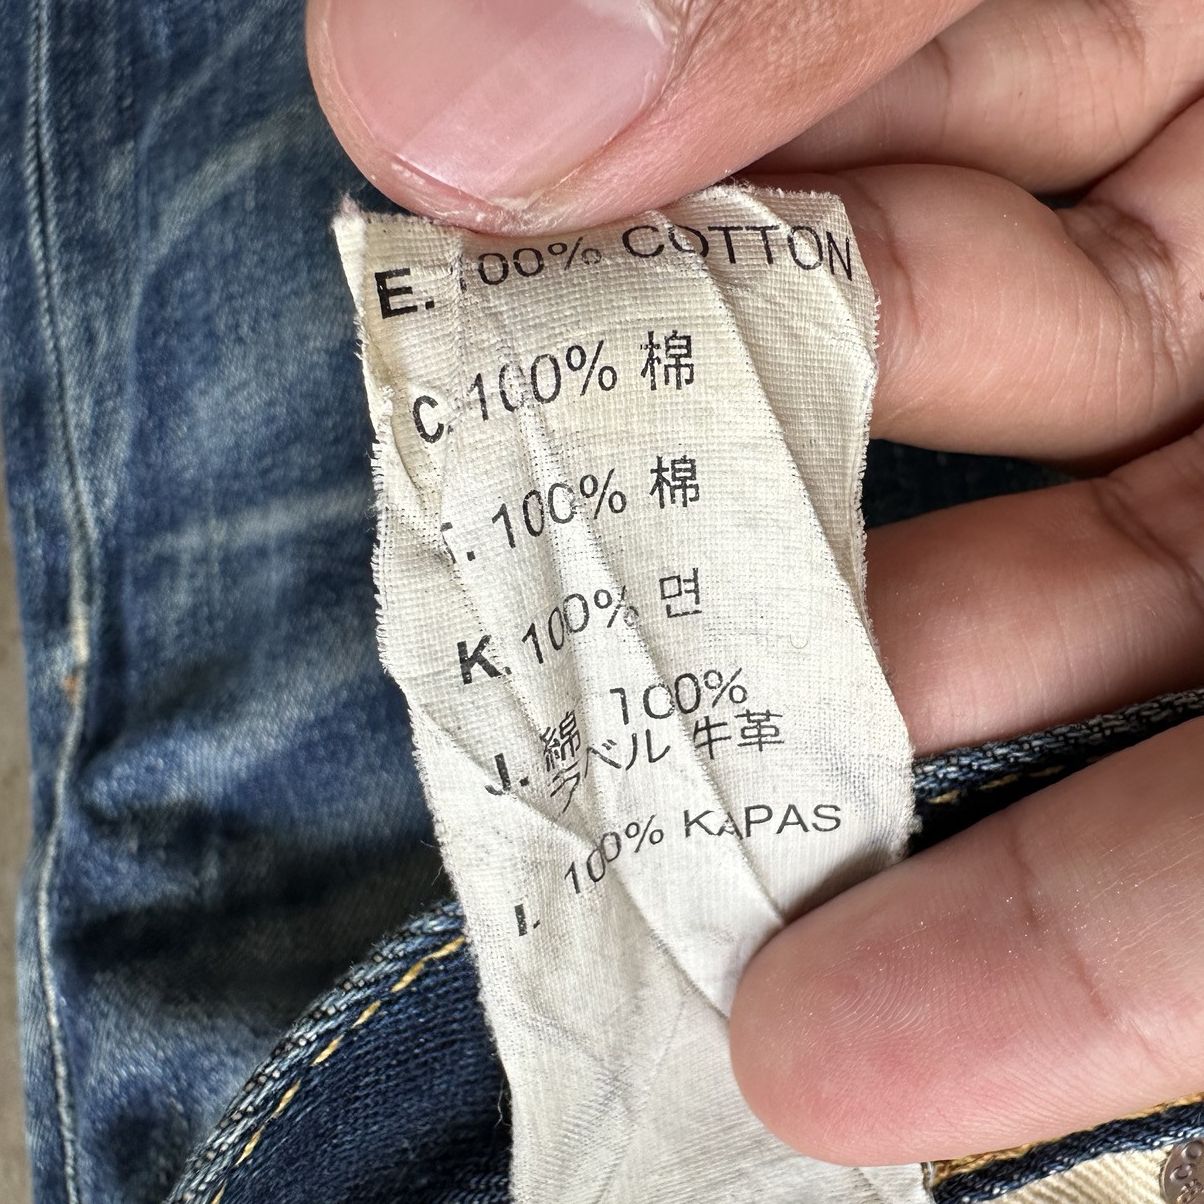 E. 100% COTTON
C. 100% 棉
T. 100% 棉
K. 100% 면
J. 綿 100%
ラベル 牛革
I. 100% KAPAS